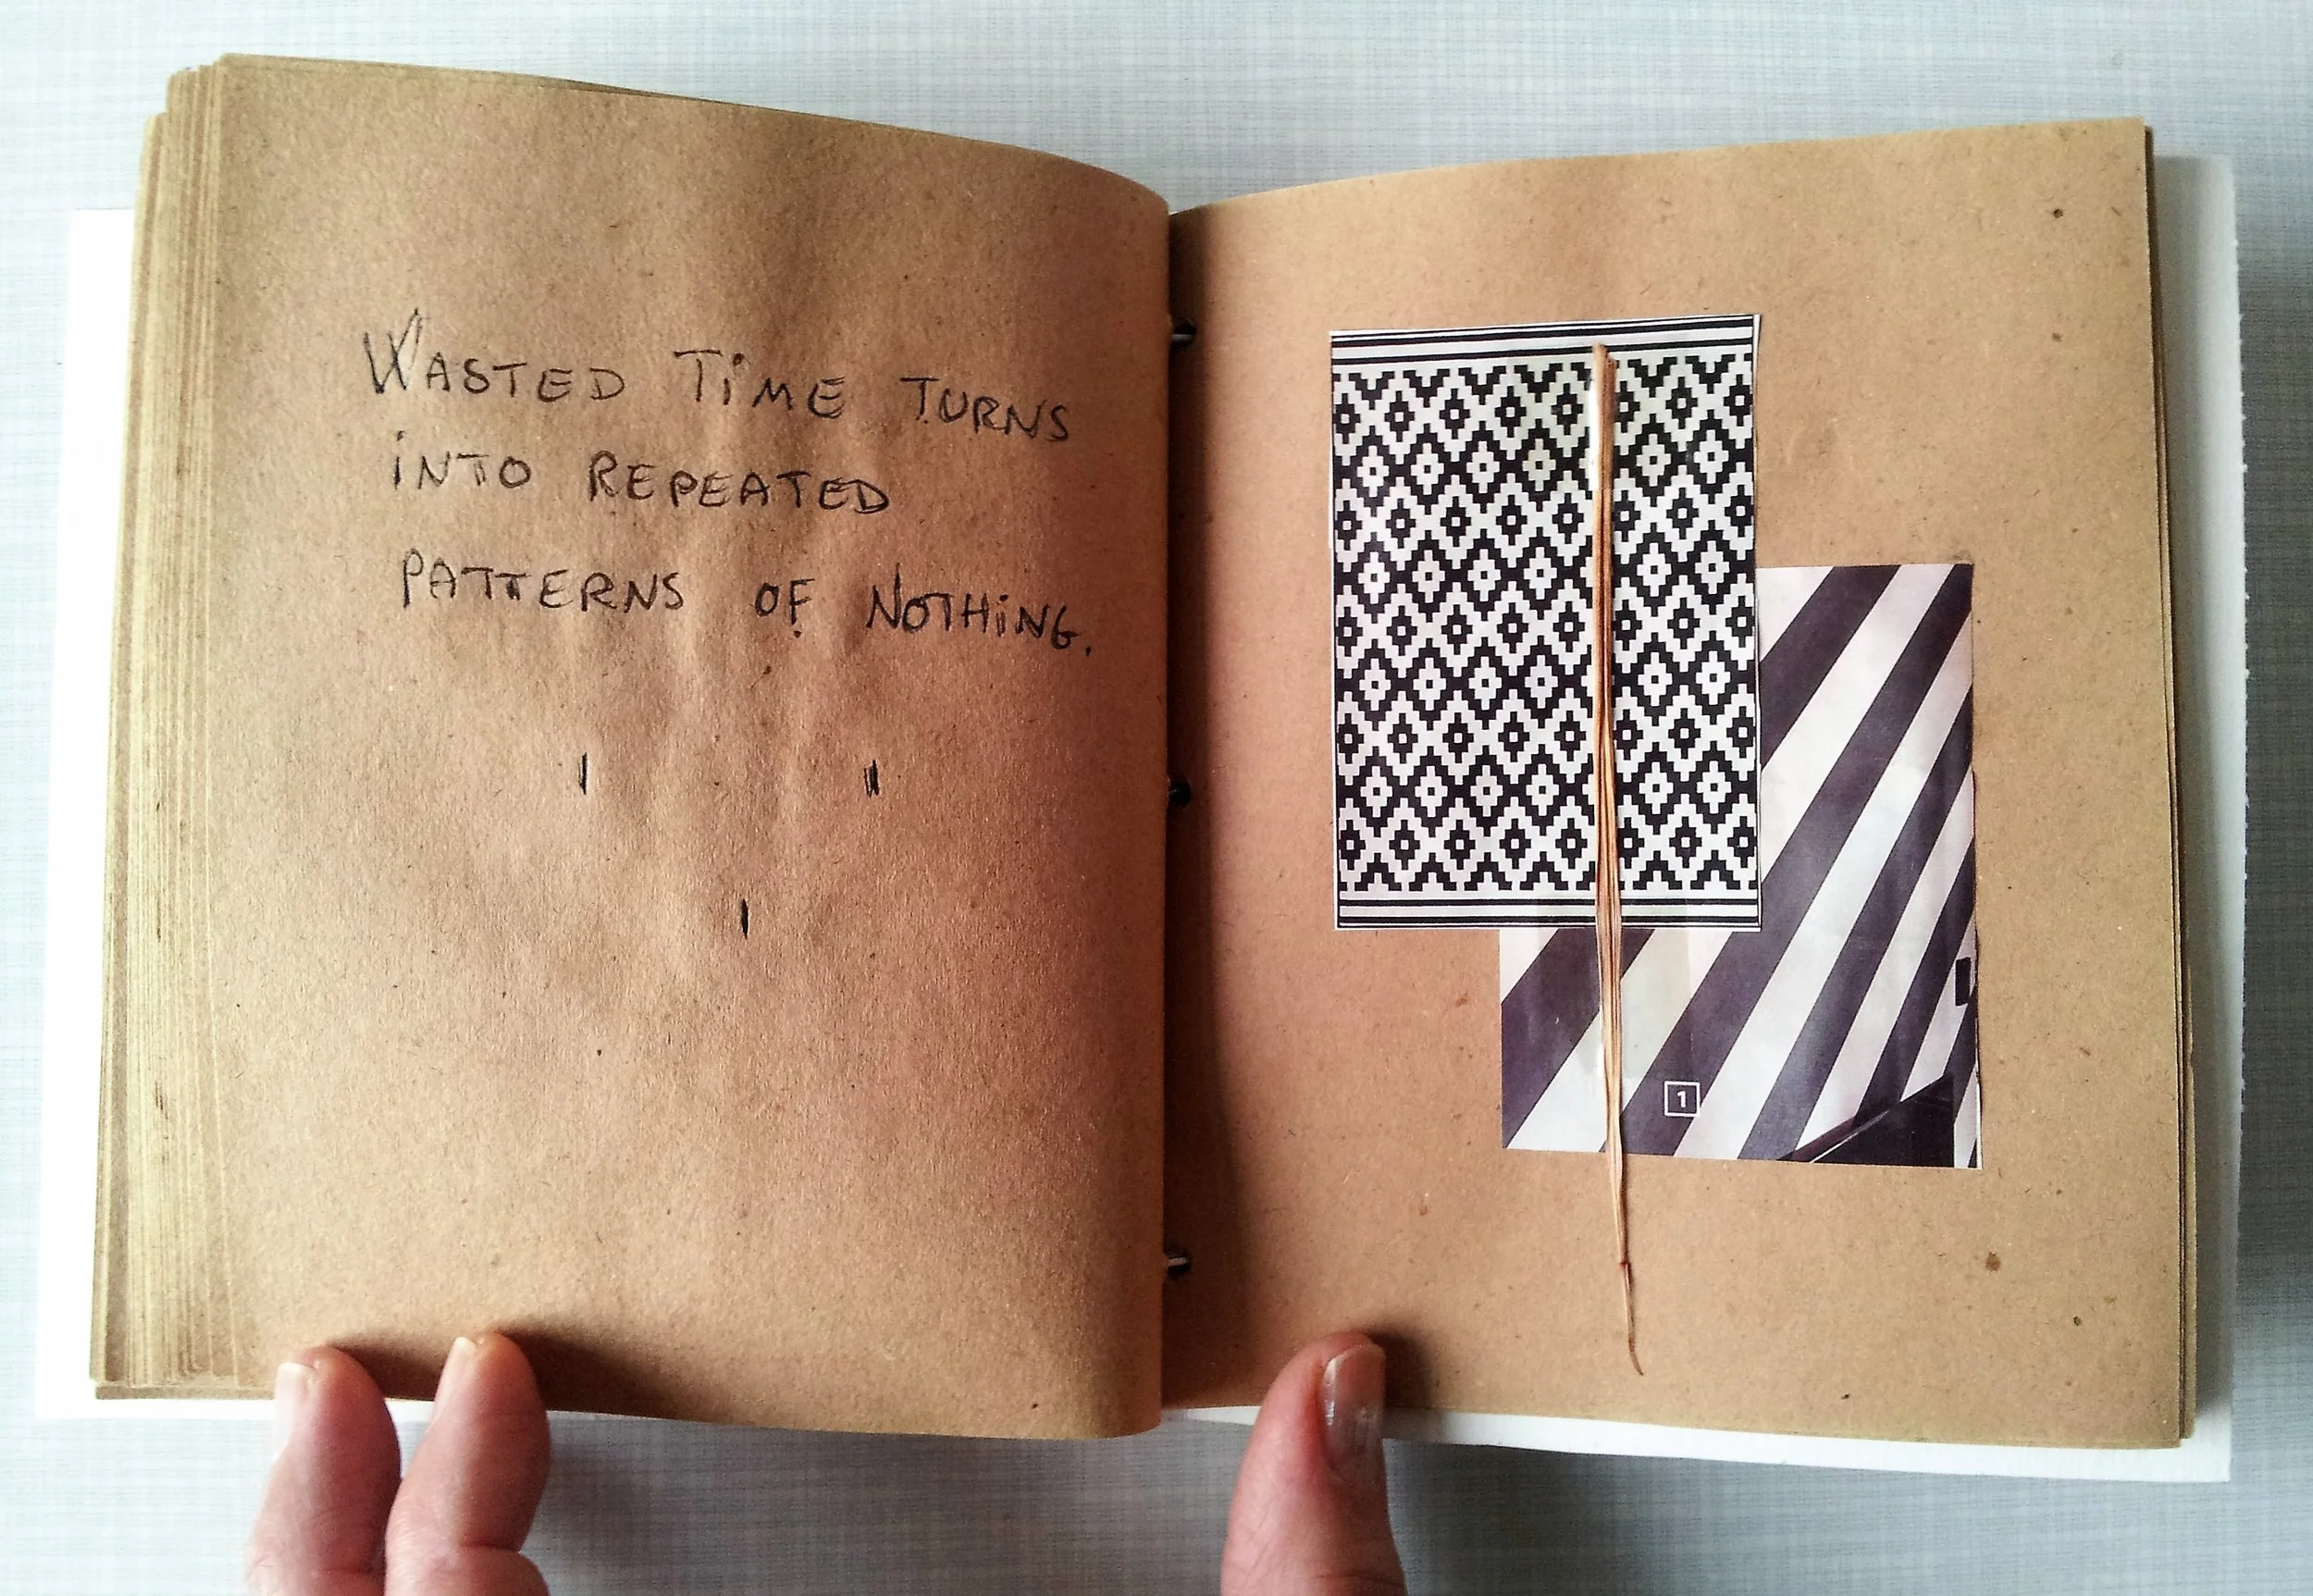 WASTED TiME TURNS
iNTO REPEATED
PATTERNS OF NOTHiNG.
1